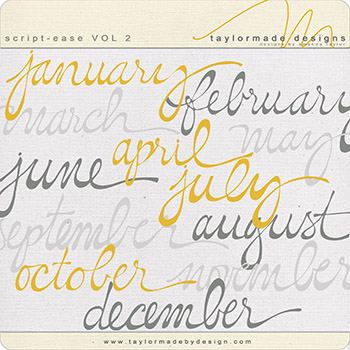 script-ease VOL 2
taylormade designs
january
february
march
may
april
june
july
august
september
october
november
december
www.taylormadebydesign.com